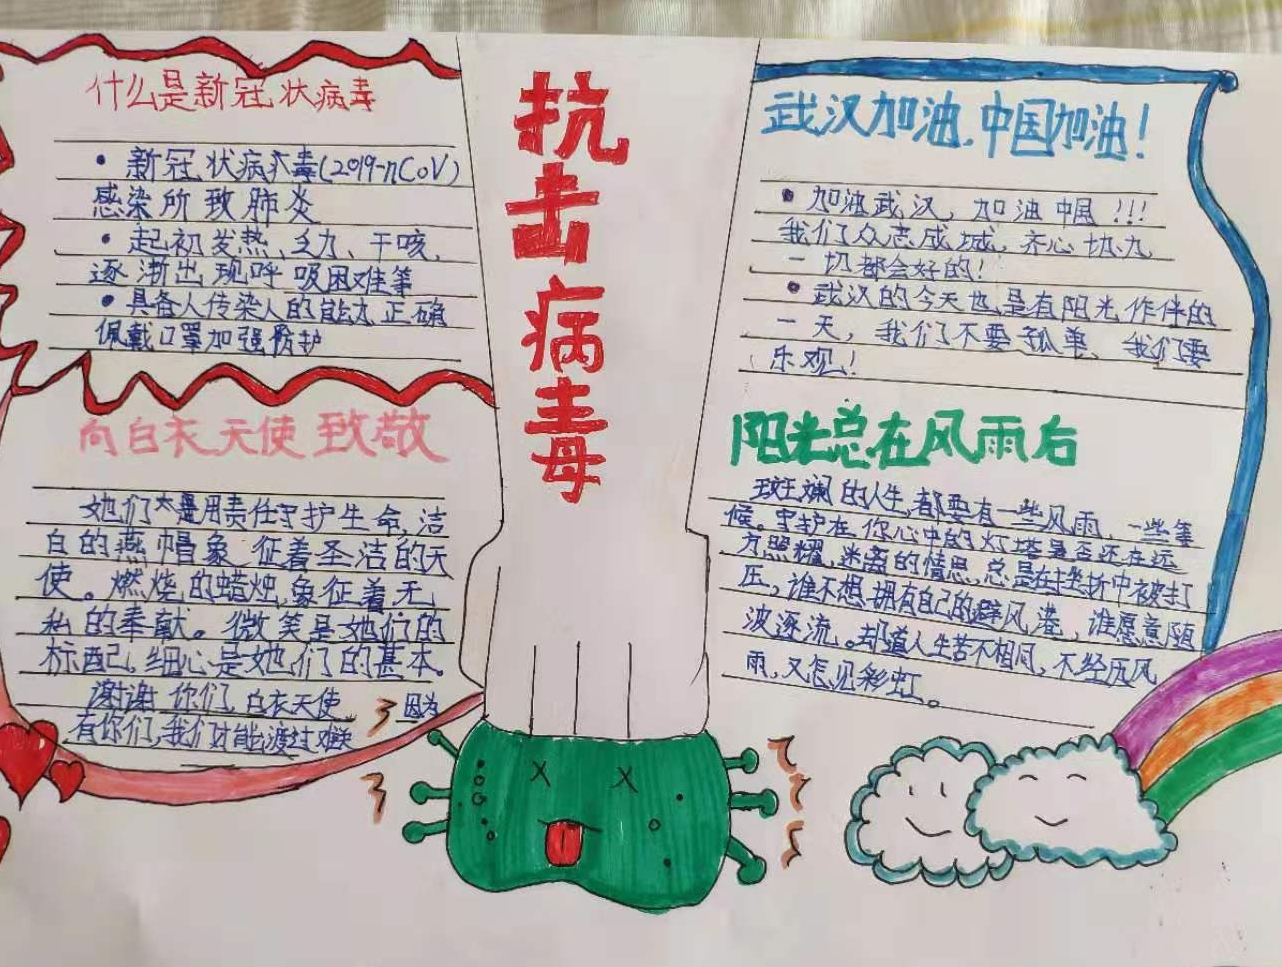 什么是新冠状病毒
• 新冠状病病毒(2019-nCoV)
感染所致肺炎
• 起初发热、乏力、干咳，
逐渐出现呼吸困难等
• 具备人传染人的能力正确
佩戴口罩加强防护
向白衣天使致敬
她们是用责任守护生命，洁
白的燕帽象征着圣洁的天
使。燃烧的蜡烛，象征着无
私的奉献。微笑是她们的
标配，细心是她们的基本。
谢谢你们，白衣天使 因为
有你们，我们才能渡过难关
抗击病毒
武汉加油，中国加油！
• 加油武汉，加油中国！！！
我们众志成城，齐心协力，
一切都会好的！
• 武汉的今天也是有阳光作伴的
一天，我们不要孤单、我们要
乐观！
阳光总在风雨右
斑斓的人生，都要有一些风雨、一些等
候。守护在你心中的灯塔是否还在远
方照耀，迷离的情思，总是在挫折中被打
压，谁不想拥有自己的避风港，谁愿意随
波逐流。却道人生苦不相同，不经历风
雨，又怎见彩虹。